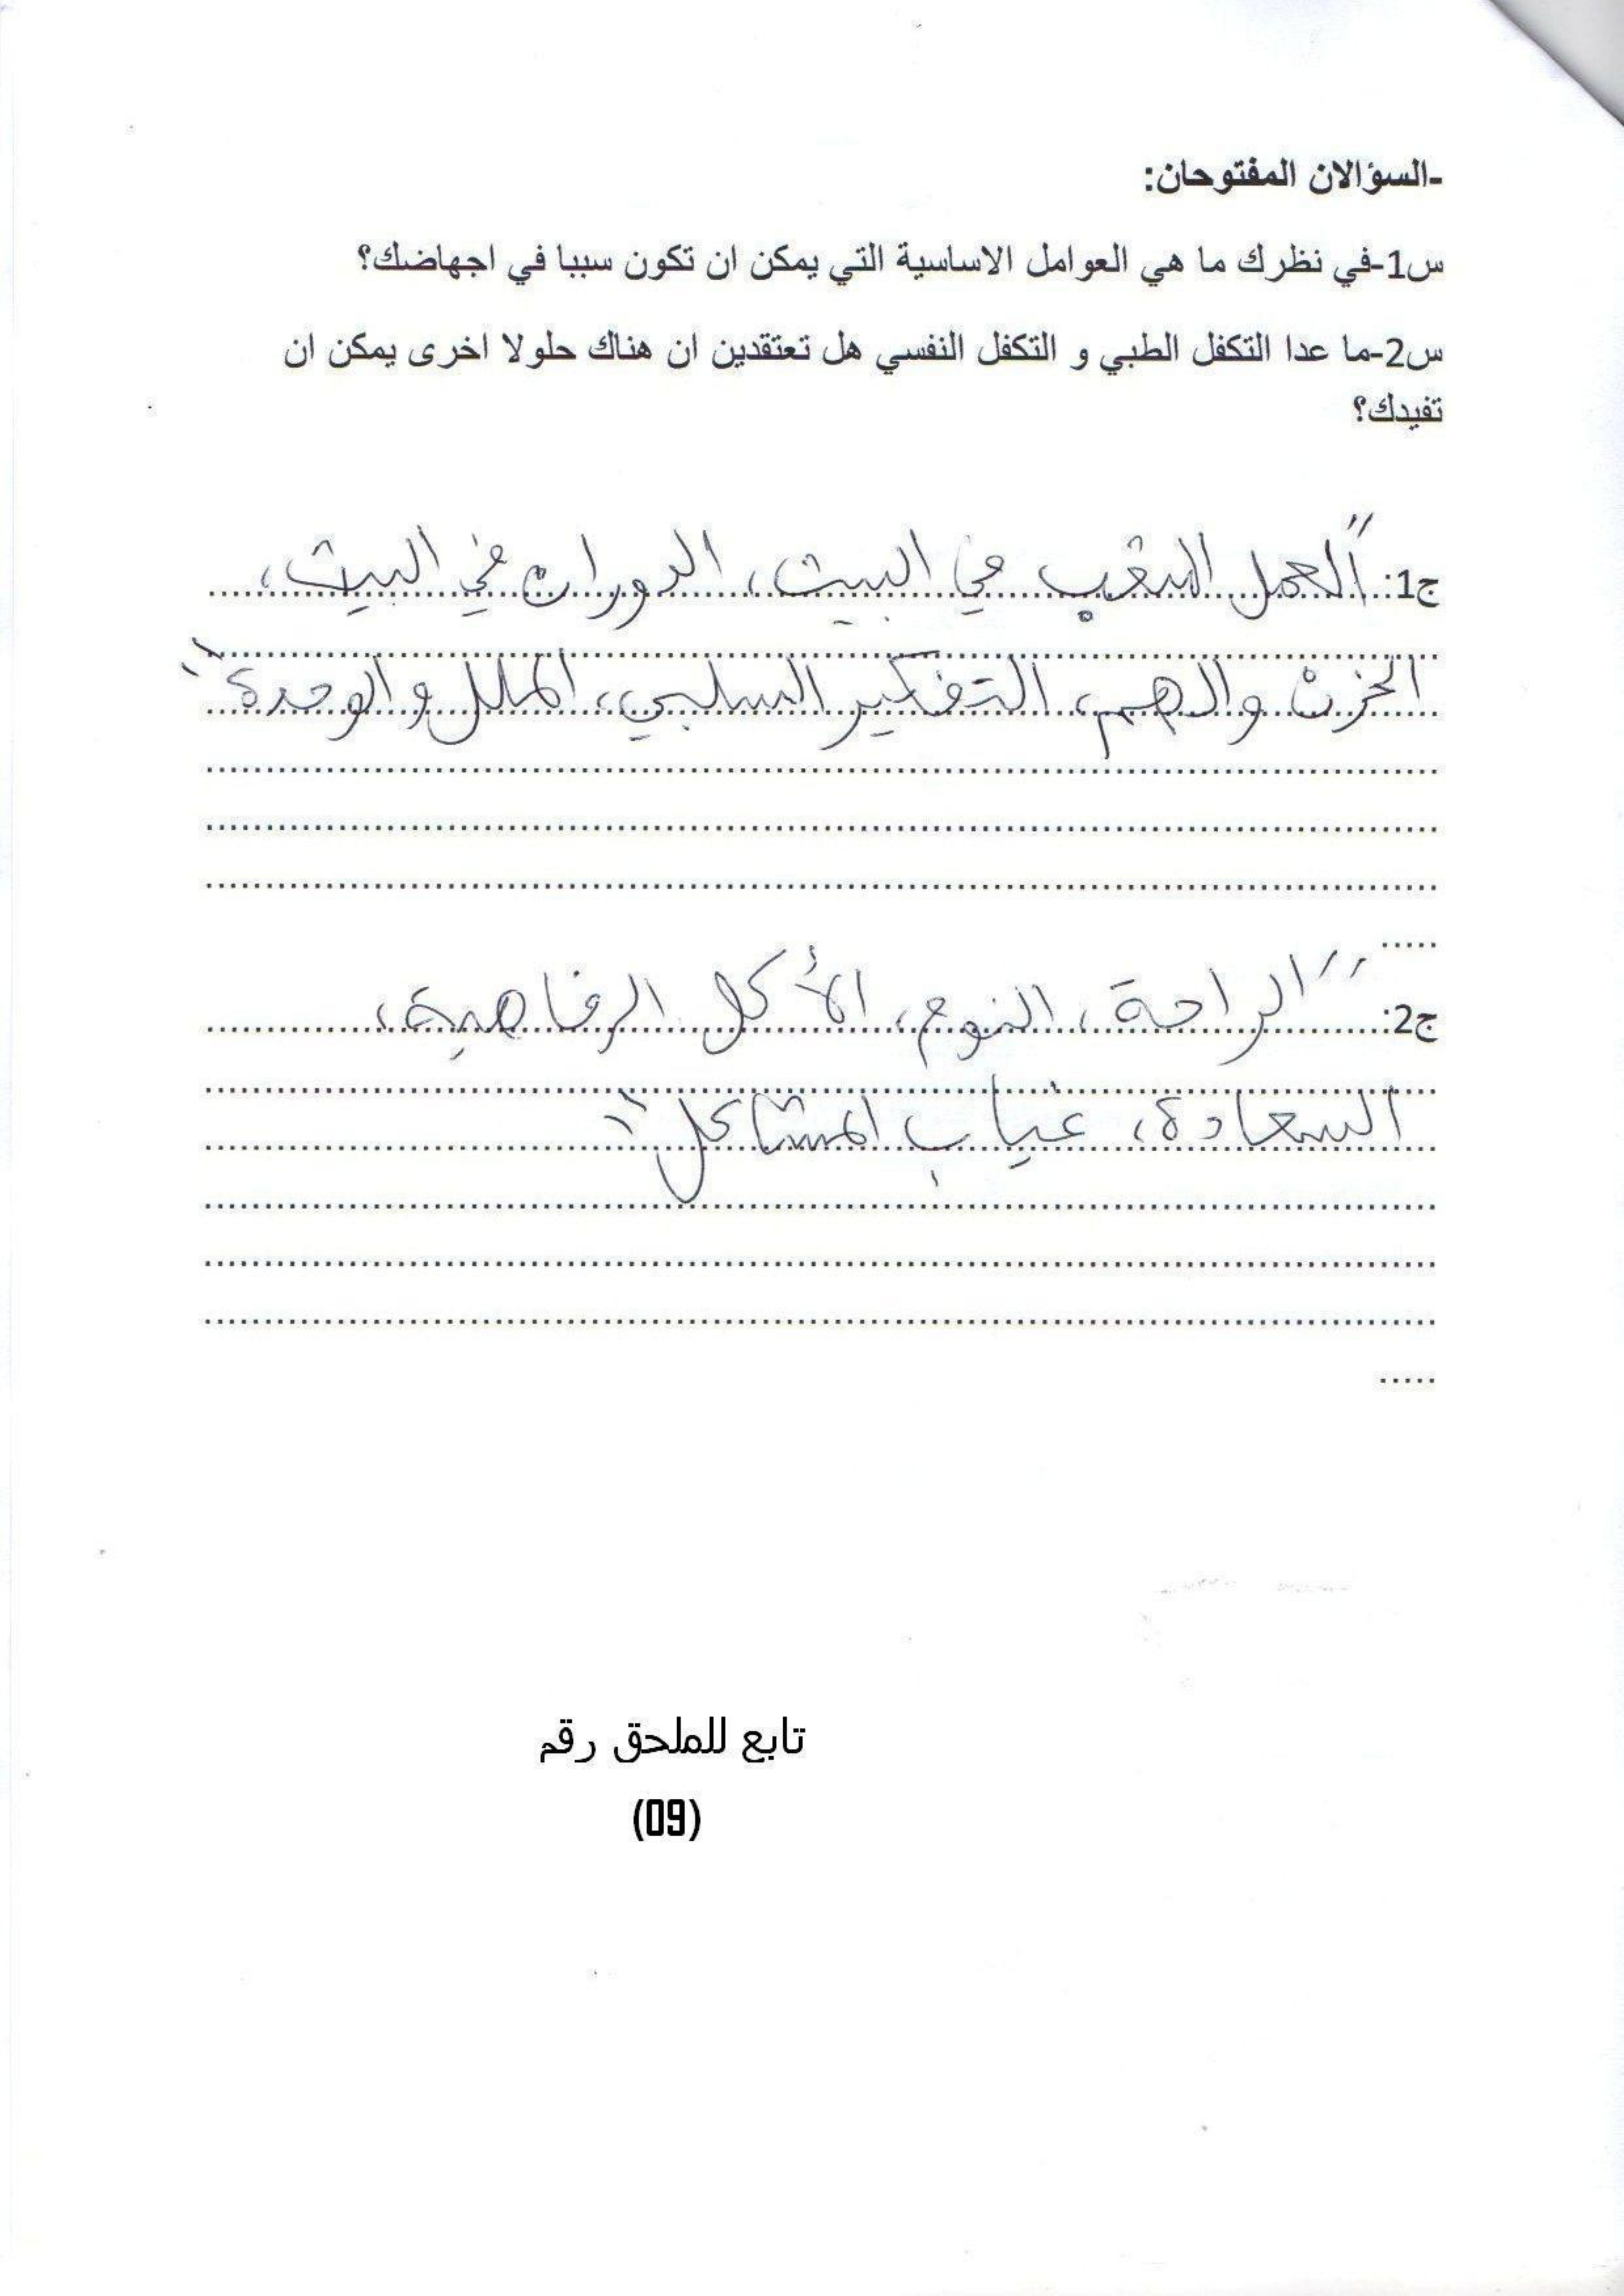 -السؤالان المفتوحان:
س1-في نظرك ما هي العوامل الاساسية التي يمكن ان تكون سببا في اجهاضك؟
س2-ما عدا التكفل الطبي و التكفل النفسي هل تعتقدين ان هناك حلولا اخرى يمكن ان
تفيدك؟
ج1: "العمل المتعب في البيت، الدوران في البيت،
الحزن والهم، التفكير السلبي، الملل والوحدة"
ج2: "الراحة، النوم، الأكل الرفاهية،
السعادة، غياب المشاكل"
تابع للملحق رقم
(09)